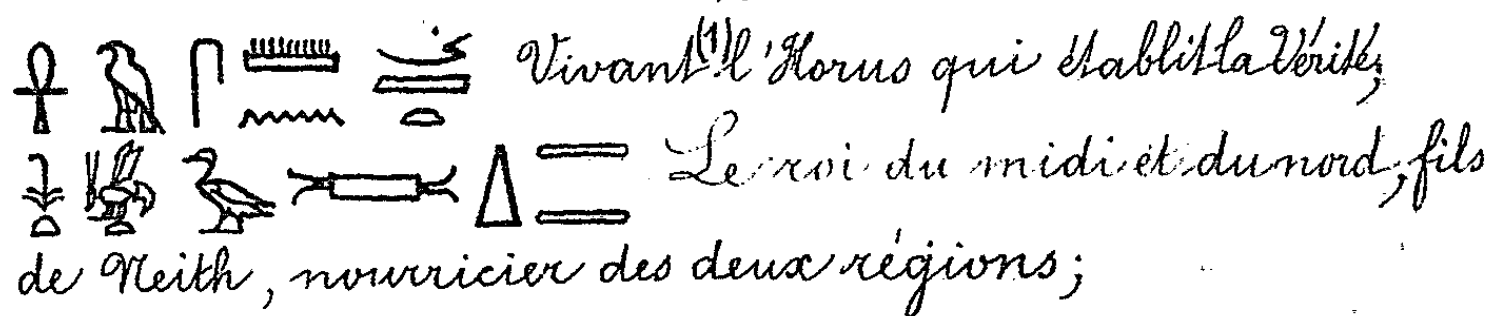 𓋹𓅃𓋴𓏠𓈖𓌳𓐙𓏏 Vivant(1) l'Horus qui établit la Vérité;
𓇓𓏏𓆤𓏏𓅭𓋋𓇮𓇾𓇾 Le roi du midi et du nord, fils
de Neith, nourricier des deux régions;